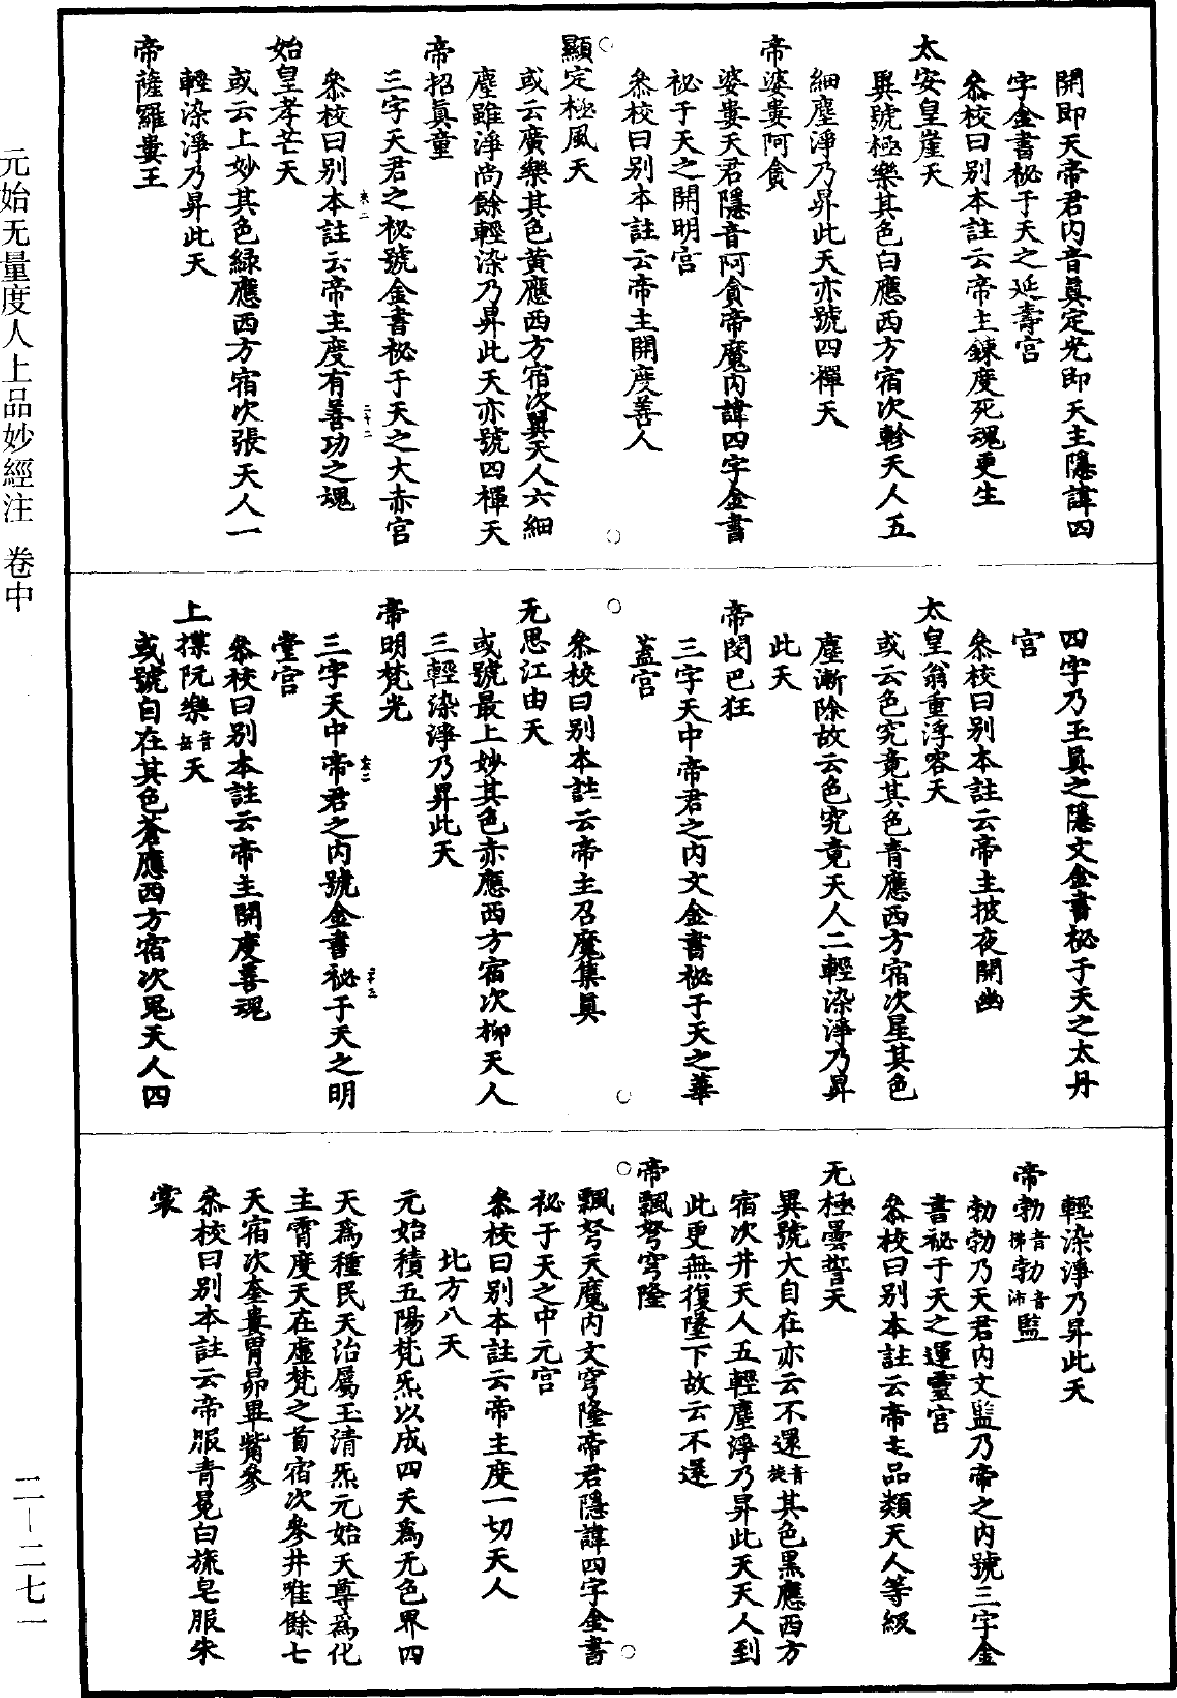 開即天帝君内音真定光即天主隱諱四
字金書祕于天之延壽宫
叅校曰别本註云帝主鍊度死魂更生
太安皇崖天
異號極樂其色白應西方宿次軫天人五
細塵淨乃昇此天亦號四禪天
帝婆婁阿貪
婆婁天君隱音阿貪帝魔内諱四字金書
祕于天之開明宫
叅校曰别本註云帝主開度善人
顯定極風天
或云廣樂其色黄應西方宿次翼天人六細
塵雖淨尚餘輕染乃昇此天亦號四禪天
帝招真童
三字天君之祕號金書祕于天之大赤宫
叅校曰别本註云帝主度有善功之魂
始皇孝芒天
或云上妙其色緑應西方宿次張天人一
輕染淨乃昇此天
帝薩羅婁王
四字乃王真之隱文金書祕于天之太丹
宫
叅校曰别本註云帝主披夜開幽
太皇翁重浮容天
或云色究竟其色青應西方宿次星其色
塵漸除故云色究竟天人二輕染淨乃昇
此天
帝閔巴狂
三字天中帝君之内文金書祕于天之華
蓋宫
叅校曰别本註云帝主召魔集真
无思江由天
或號最上妙其色赤應西方宿次柳天人
三輕染淨乃昇此天
帝明梵光
三字天中帝君之内號金書祕于天之明
堂宫
叅校曰别本註云帝主開度善魂
上揲阮樂音岳天
或號自在其色蒼應西方宿次鬼天人四
輕染淨乃昇此天
帝勃音拂勃音沛監
勃勃乃天君内文監乃帝之内號三字金
書祕于天之運靈宫
叅校曰别本註云帝主品類天人等級
无極曇誓天
異號大自在亦云不還音旋其色黑應西方
宿次井天人五輕塵淨乃昇此天天人到
此更無復墜下故云不還
帝飄弩穹隆
飄弩天魔内文穹隆帝君隱諱四字金書
祕于天之中元宫
叅校曰别本註云帝主度一切天人
北方八天
元始積五陽梵炁以成四天爲无色界四
天爲種民天治屬玉清炁元始天尊爲化
主霄度天在虚梵之首宿次參井唯餘七
天宿次奎婁胃昴畢觜參
叅校曰别本註云帝服青冕白旒皂服朱
裳
元始无量度人上品妙經注 卷中
二—二七一